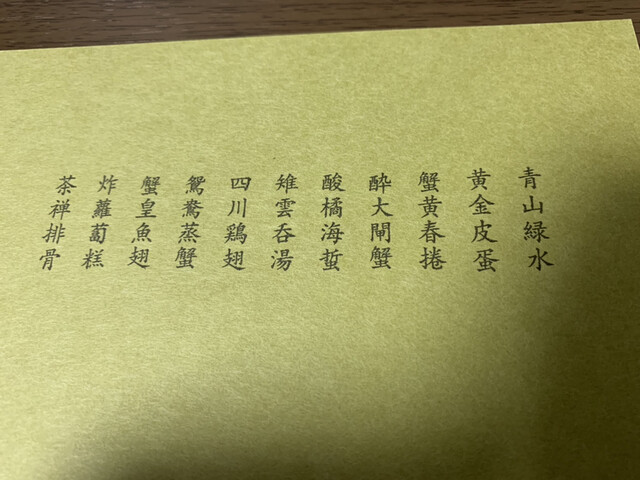 青山緑水
黄金皮蛋
蟹黄春捲
酔大閘蟹
酸橘海蜇
雉雲呑湯
四川鶏翅
鴛鴦蒸蟹
蟹皇魚翅
炸蘿蔔糕
茶禅排骨